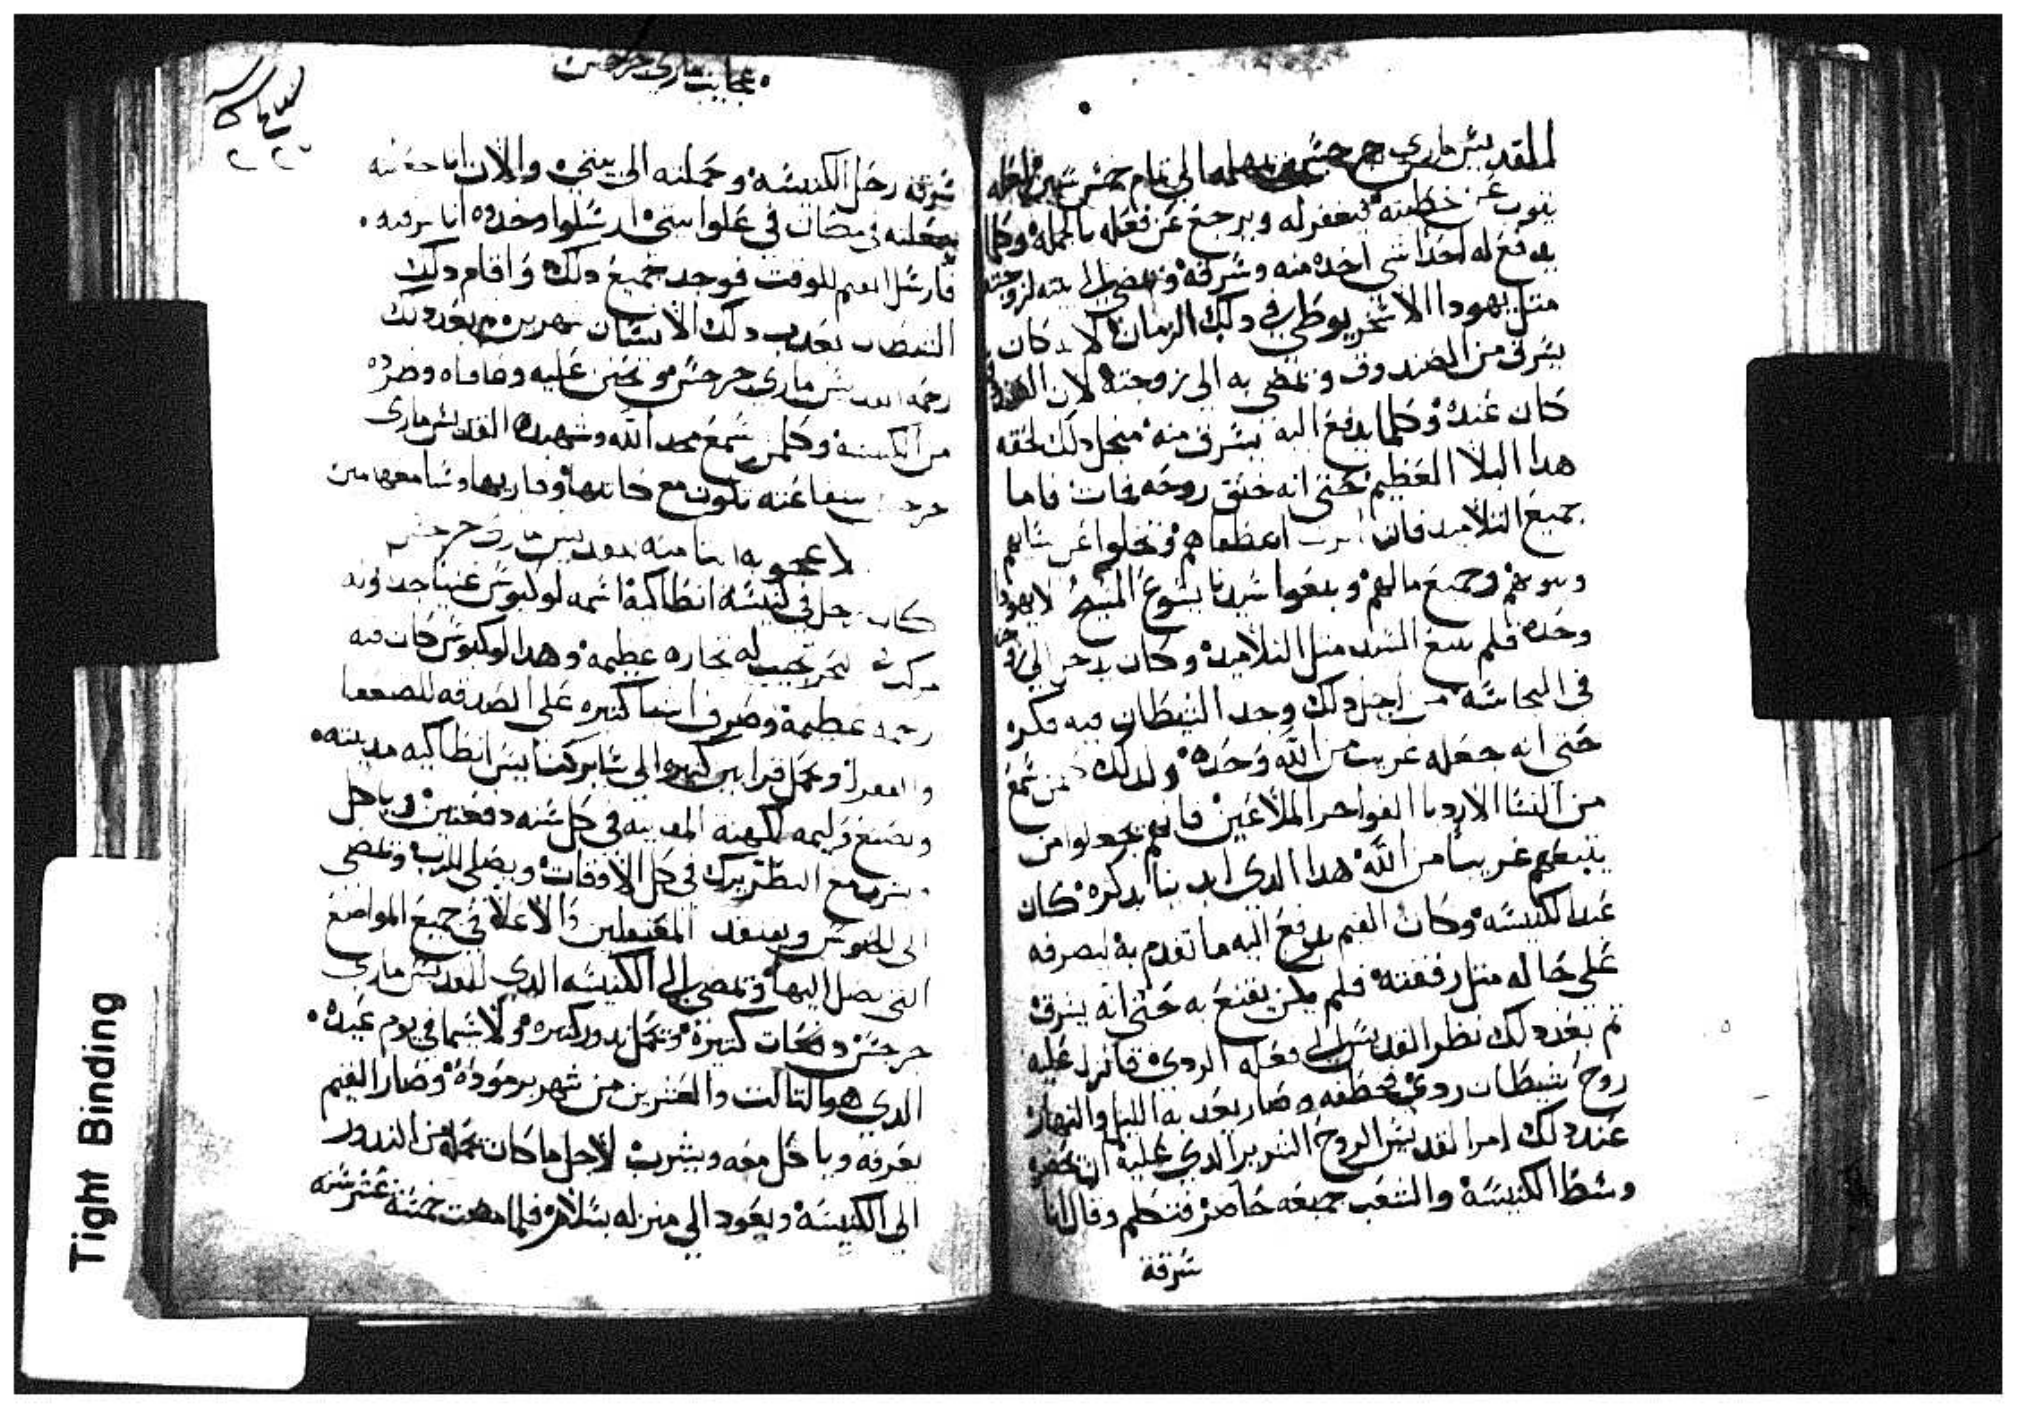 للقديس ماري جرجس يمهله الى تمام خمس شهور لعله
يتوب عن خطيته فيغفر له ويرجع عن فعله بالجمله وكلما
يدفع له احدا شي اخد منه وسرقه ويمضي الى بيته لزوجته
متل يهودا الاسخريوطي في دلك الزمان لانه كان
يسرق من الصندوق ويمضي به الى زوجته لان الصندوق
كان عنده وكلما يدفع اليه يسرق منه منجل دلك لحقه
هدا البلا العظيم حتى انه خنق روحه فمات فاما
جميع التلاميد فان الرب اعطاهم وتخلوا عن نسايهم
وبيوتهم وجميع مالهم وتبعوا سيدنا يسوع المسيح لا يهودا
وحده فلم يتبع السيد متل التلاميد وكان يدخل الى زوجته
في النجاسة من اجل دلك وجد الشيطان فيه مكره
حتى انه جعله غريب من الله وحده ولدلك كلمن سمع
من النسا الارديا الفواجر الملاعين فانهم يجعلوا من
يتبعهم غريبا من الله هدا الدي ابدينا بدكره كان
عبد الكنيسه وكان القيم يدفع اليه ما تقدم به ليصرفه
على حاله متل رفقته فلم يكن يقنع به حتى انه يسرق
تم بعد دلك نظر القديس الى فعله الردي فانزل عليه
روح شيطان ردي فخطفه وصار يعدبه الليل والنهار
عند دلك امر القديس الروح الشرير الدي عليه ان يحضره
وسط الكنيسة والشعب جميعه حاضر فتكلم وقال انا
سرقة
عجايب ماري جرجس
سرقة رحل الكنيسة وحملته الى بيتي والان انا جعلته
في مكان في علوا بيتي ارسلوا وحدوه انا سرقته
فارسل القيم للوقت فوجد جميع دلك واقام دلك
الشيطان يعدب دلك الانسان شهرين وبعد دلك
رحمه القديس ماري جرجس وتحنن عليه وعافاه وطرده
من الكنيسة وكلمن سمع مجد الله وشهيده القديس ماري
جرجس شفاعته تكون مع كاتبها وقاريها وسامعها امين
الاعجوبه التامنه للقديس ماري جرجس
كان رجل في كنيسة انطاكية اسمه لوكيوس غنيا جدا وله
مركب في البحر تجيب له تجاره عظيمه وهدا لوكيوس كان فيه
رحمه عظيمة وصرف اشيا كتيره على الصدقه للضعفا
والفقرا وعمل قرابين كتيره الى ساير كنايس انطاكيه مدينته
ويصنع وليمه لكهنة المدينه في كل سنه دفعتين وياكل
ويشرب مع البطريرك في كل الاوقات ويصلي للرب ويمضي
الى الحبوس ويفتقد المعتقلين والاعلا في جميع المواضع
التي يصل اليها ويمضي الى الكنيسه الدي للقديس ماري
جرجس دفعات كتيرة ويحمل ندور كتيره ولا سيما في يوم عيده
الدي هو التالت والعشرين من شهر برموده وصار القيم
يعرفه وياكل معه ويشرب لاجل ما كان يحمله من الندور
الى الكنيسة ويعود الى منزله بسلام فلما مضت خمسة عشر سنه